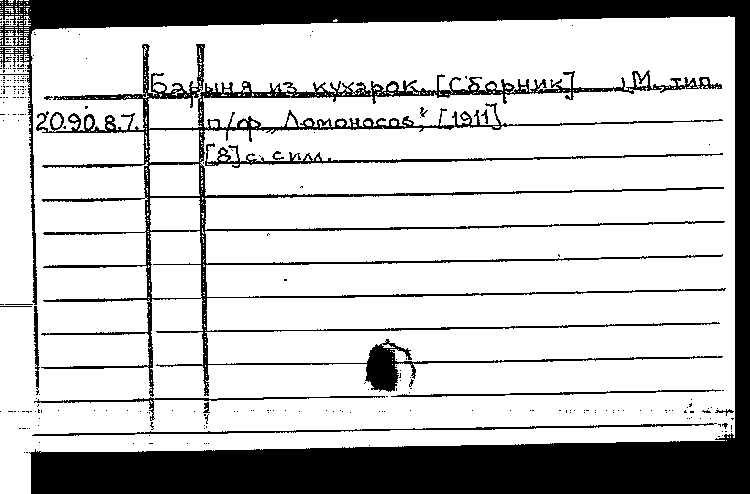 Барыня из кухарок. [Сборник] М., тип.
20.90.8.7. п/ф „Ломоносов", [1911].
[8] с. с илл.